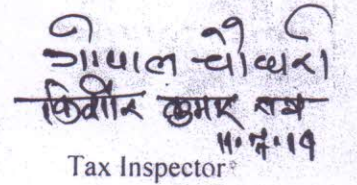 गोपाल चौधरी
किशोर कुमार
11.7.19
Tax Inspector